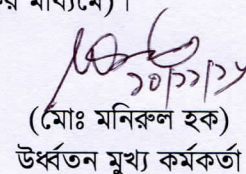 র মাধ্যমে)।
(মোঃ মনিরুল হক)
উর্ধ্বতন মুখ্য কর্মকর্তা